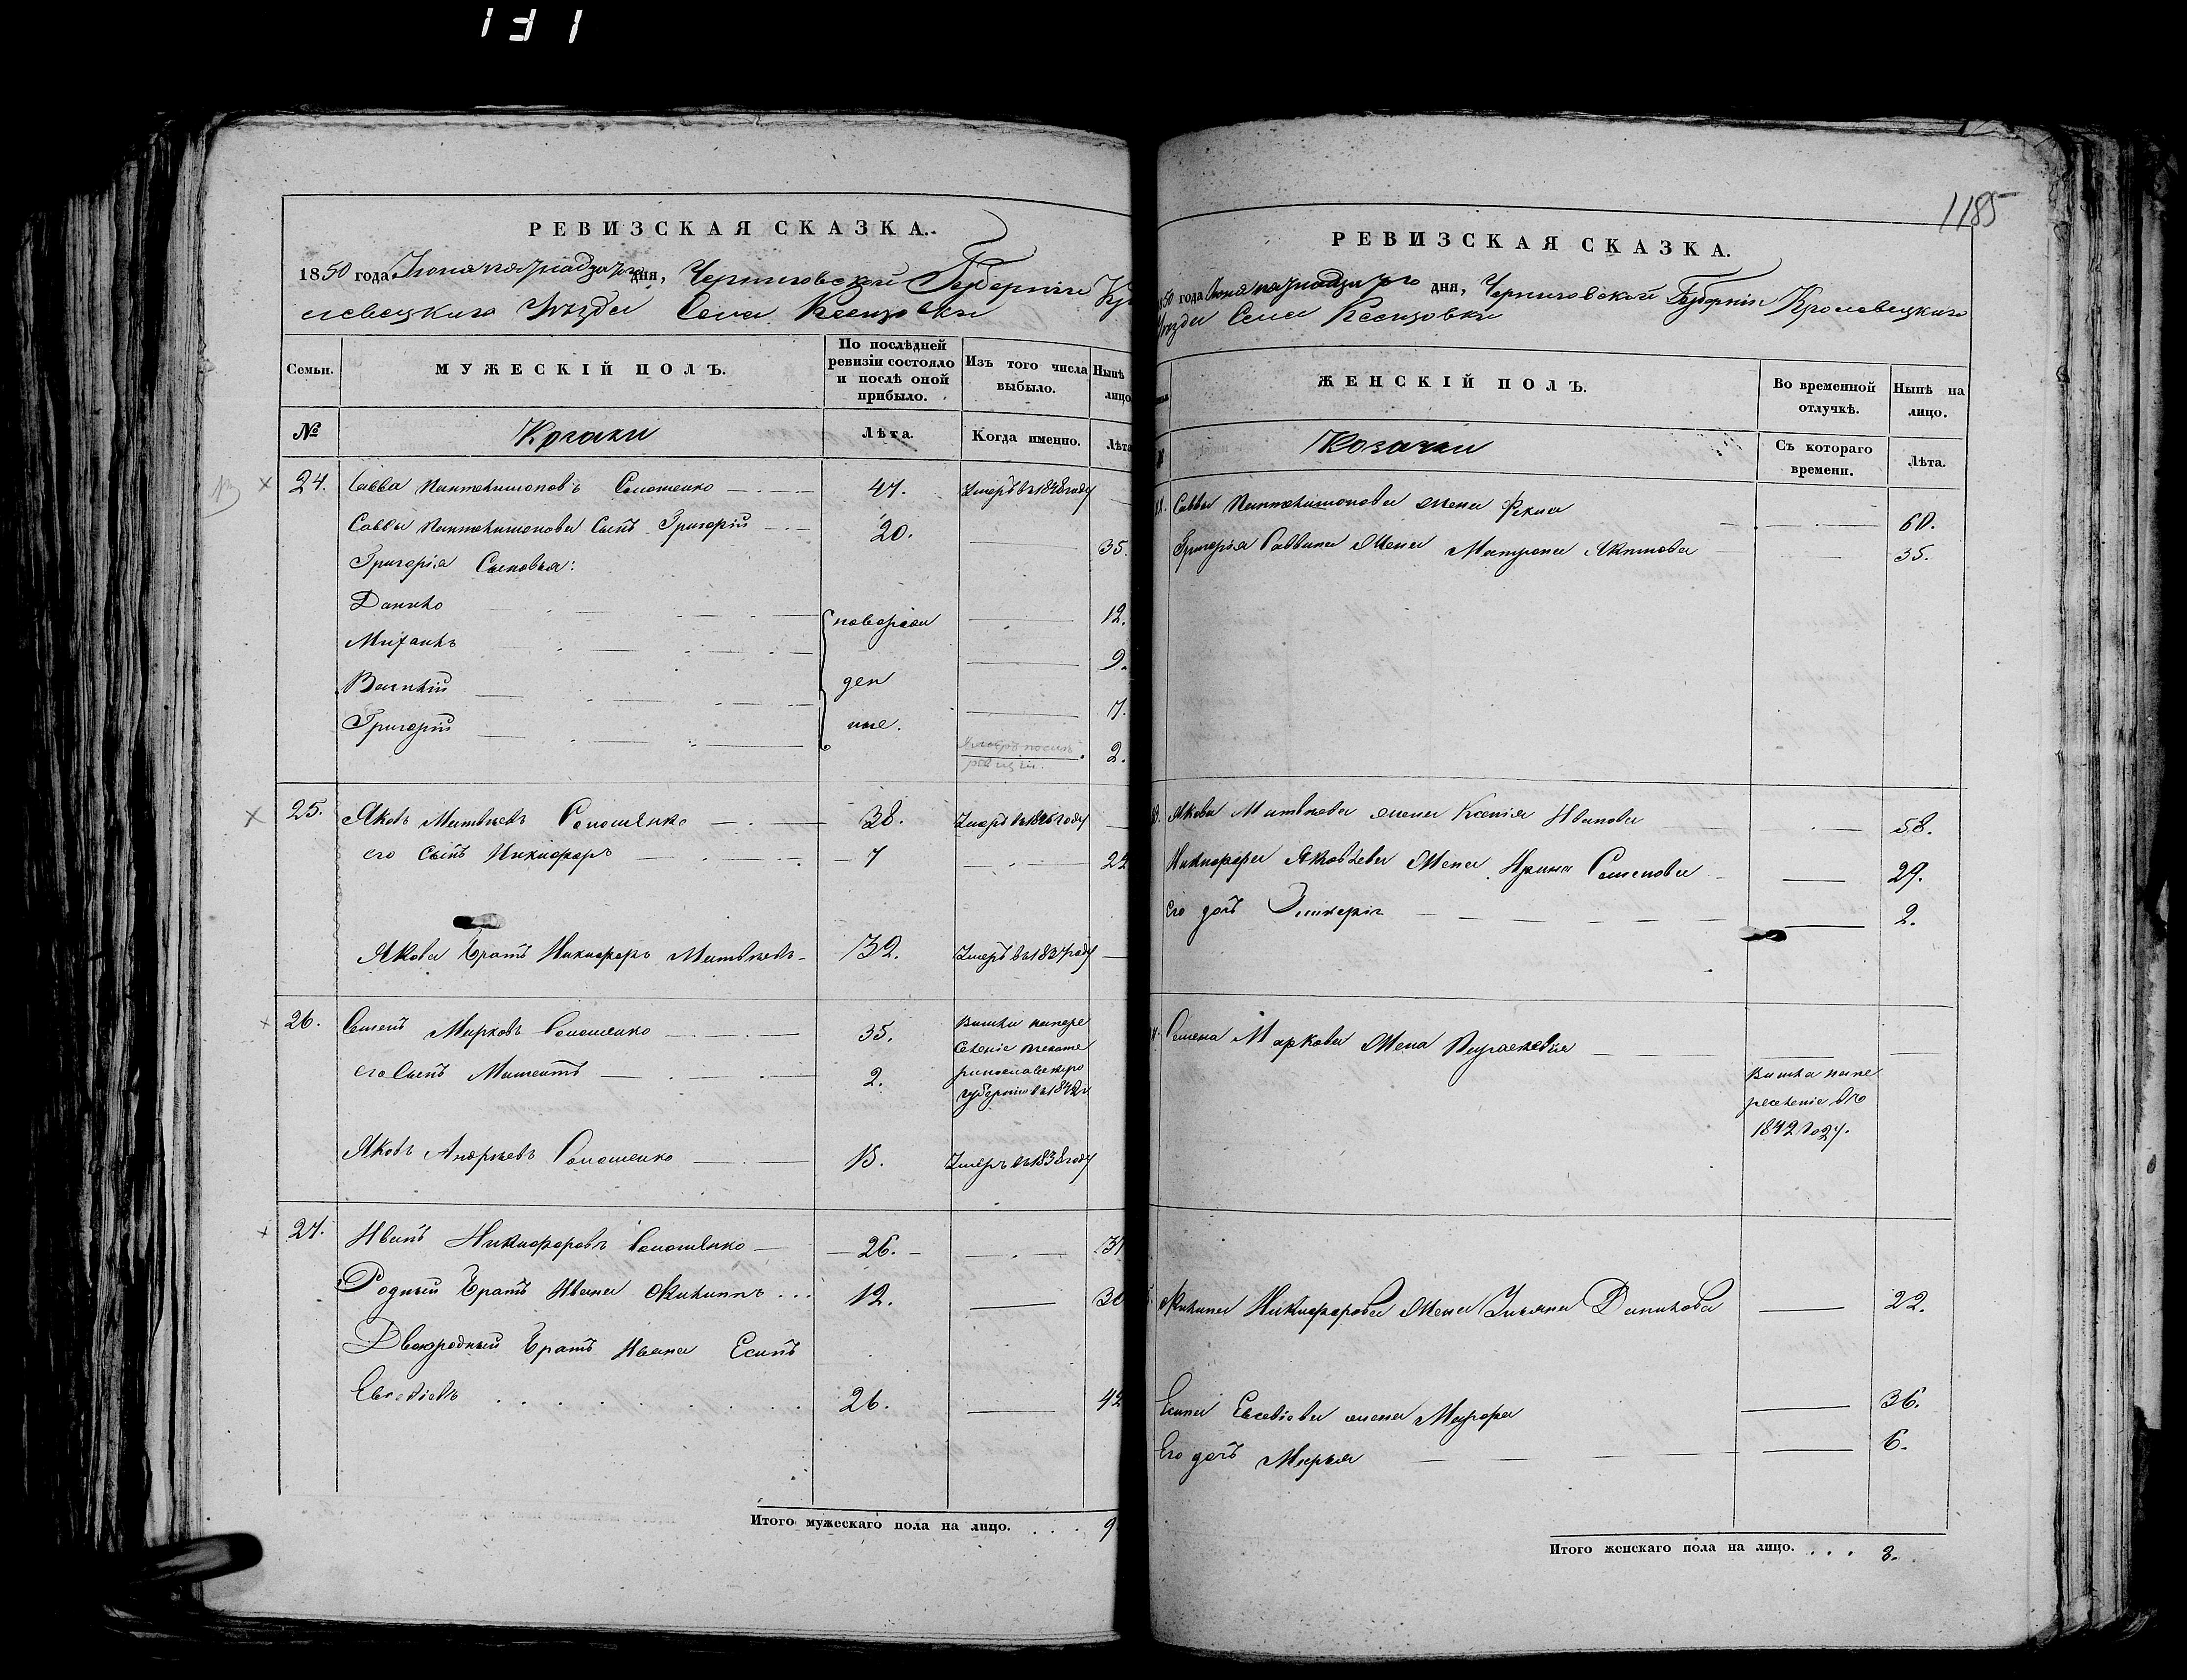 131
1185
РЕВИЗСКАЯ СКАЗКА.
1850 года Іюня пятнадцатого дня, Черниговской Губерніи Кро
левецкаго Уѣзда Села
МУЖЕСКІЙ ПОЛЪ.
Семьи.
По послѣдней ревизіи состояло и послѣ оной прибыло.
Изъ того числа выбыло.
Нынѣ лицо
№
Козаки
Лѣта.
Когда именно.
Лѣта
24. Савва Пантелимоновъ Соломенко 47. Умеръ в 1848 году
Саввы Пантелимонова Сынъ Григорій 20. 35.
Григорія Сыновья:
Данило новорож 12.
Михаилъ 9.
Василій ден 7.
Григорій ные. 2.
Умеръ послѣ ревизіи.
25. Яковъ Матвѣевъ Соломенко 38. Умеръ в 1846 году
его Сынъ Никифоръ 7
Якова Братъ Никифоръ Матвѣевъ 32. Умеръ в 1837 году
26. Семенъ Марковъ Соломенко 35. Вышли на пере
селеніе в Екате
ринославскую
губернію в 1842 г
его Сынъ 2.
Яковъ Андреевъ Соломенко 15. Умеръ в 1838 году
27. Иванъ Никифоровъ Соломенко 26.
Родный Братъ Ивана Филиппъ 12.
Двоюродный Братъ Ивана Есипъ
Евсевіевъ 26. 42
Итого мужескаго пола на лицо. 9
РЕВИЗСКАЯ СКАЗКА.
1850 года Іюня пятнадцатого дня, Черниговской Губерніи Кролевецкаго
Уѣзда Села
ЖЕНСКІЙ ПОЛЪ.
Во временной отлучкѣ.
Нынѣ на лицо.
Козачки
Съ котораго времени.
Лѣта.
Саввы Пантелимонова жена Фекла 60.
Григорія Саввина Жена Матрона 35.
Якова Матвѣева жена Ксенія Иванова 58.
Никифора Яковлева Жена Ирина Семенова 29.
его дочь Гликерія 2.
Семена Маркова Жена Параскевія
Вышла на пе
реселеніе въ
1842 году.
Филипа Никифорова Жена Ульяна Данилова 22.
Есипа Евсевіева жена Мавра 36.
Его дочь Марья 6.
Итого женскаго пола на лицо. 8.